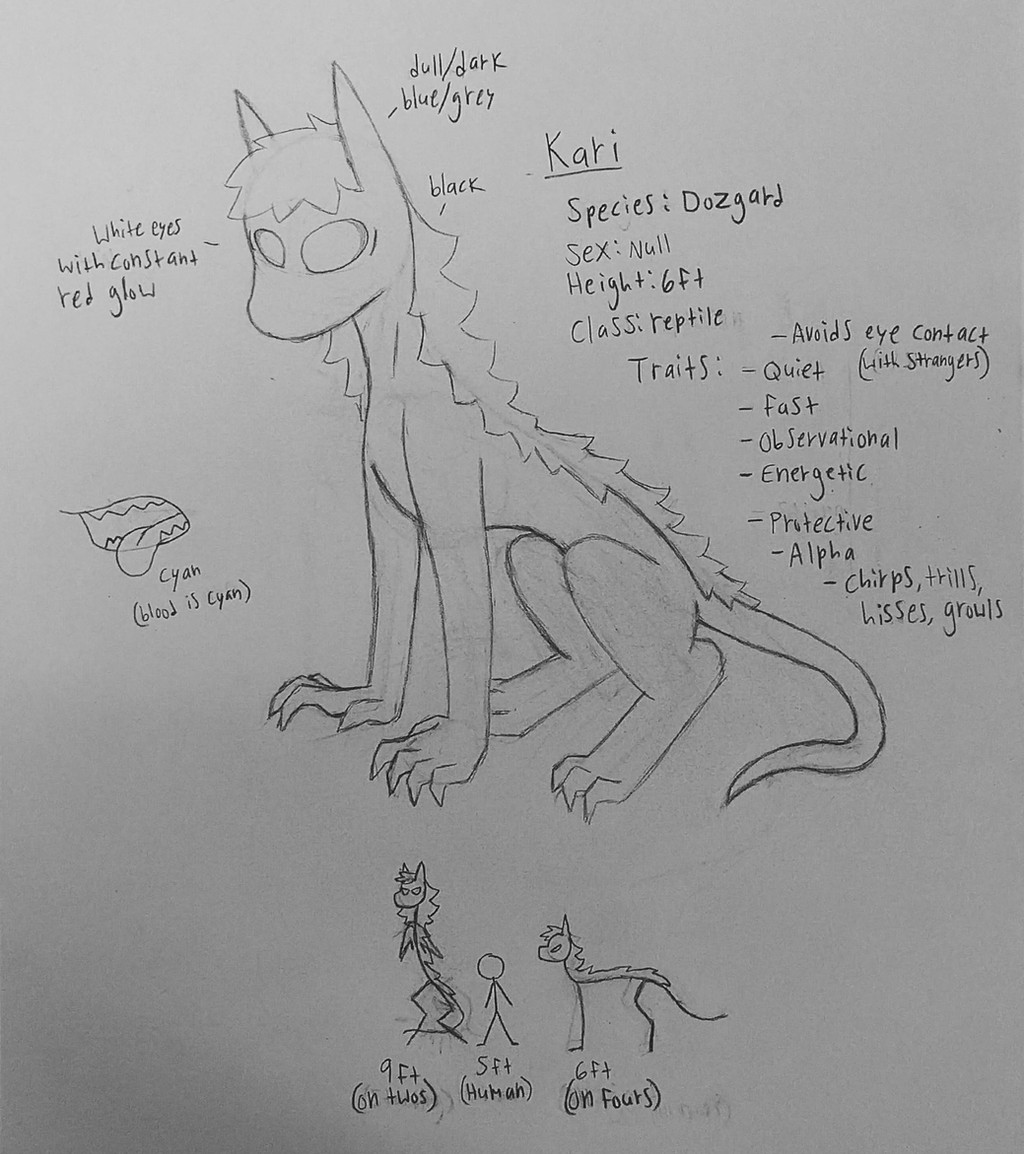 dull/dark
blue/grey
black
White eyes
with constant
red glow
Kari
Species: Dozgard
Sex: Null
Height: 6ft
Class: reptile
Traits:
- Avoids eye contact
(with strangers)
- Quiet
- Fast
- Observational
- Energetic
- Protective
- Alpha
- Chirps, trills,
hisses, growls
cyan
(blood is cyan)
9ft
(on twos)
5ft
(Human)
6ft
(on fours)